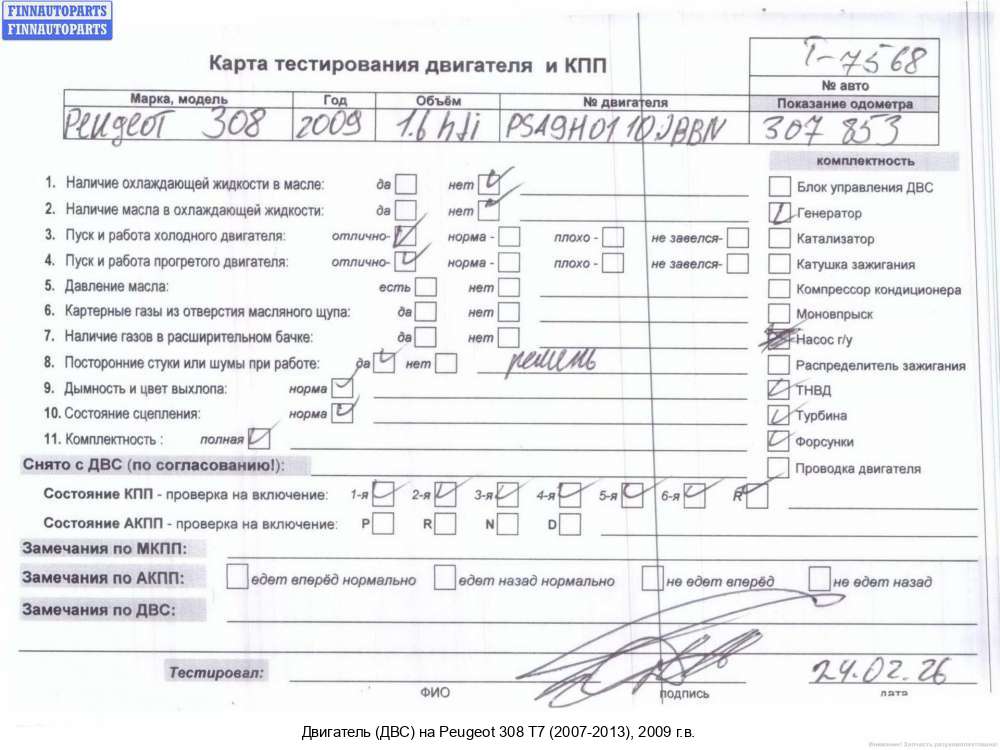 FINNAUTOPARTS
FINNAUTOPARTS
Карта тестирования двигателя и КПП
T-7568
№ авто
Марка, модель Год Объём № двигателя Показание одометра
Peugeot 308 2009 1.6 hdi PSA9H01 10JBBN 307 853
комплектность
1. Наличие охлаждающей жидкости в масле: да нет
Блок управления ДВС
2. Наличие масла в охлаждающей жидкости: да нет
Генератор
3. Пуск и работа холодного двигателя: отлично- норма - плохо - не завелся-
Катализатор
4. Пуск и работа прогретого двигателя: отлично- норма - плохо - не завелся-
Катушка зажигания
5. Давление масла: есть нет
Компрессор кондиционера
6. Картерные газы из отверстия масляного щупа: да нет
Моновпрыск
7. Наличие газов в расширительном бачке: да нет
Насос г/у
8. Посторонние стуки или шумы при работе: да нет ремень
Распределитель зажигания
9. Дымность и цвет выхлопа: норма
ТНВД
10. Состояние сцепления: норма
Турбина
11. Комплектность : полная
Форсунки
Снято с ДВС (по согласованию!):
Проводка двигателя
Состояние КПП - проверка на включение: 1-я 2-я 3-я 4-я 5-я 6-я R
Состояние АКПП - проверка на включение: P R N D
Замечания по МКПП:
Замечания по АКПП: едет вперёд нормально едет назад нормально не едет вперёд не едет назад
Замечания по ДВС:
Тестировал:
24.02.26
ФИО подпись дата
Двигатель (ДВС) на Peugeot 308 T7 (2007-2013), 2009 г.в.
Внимание! Запчасть разукомплектована!